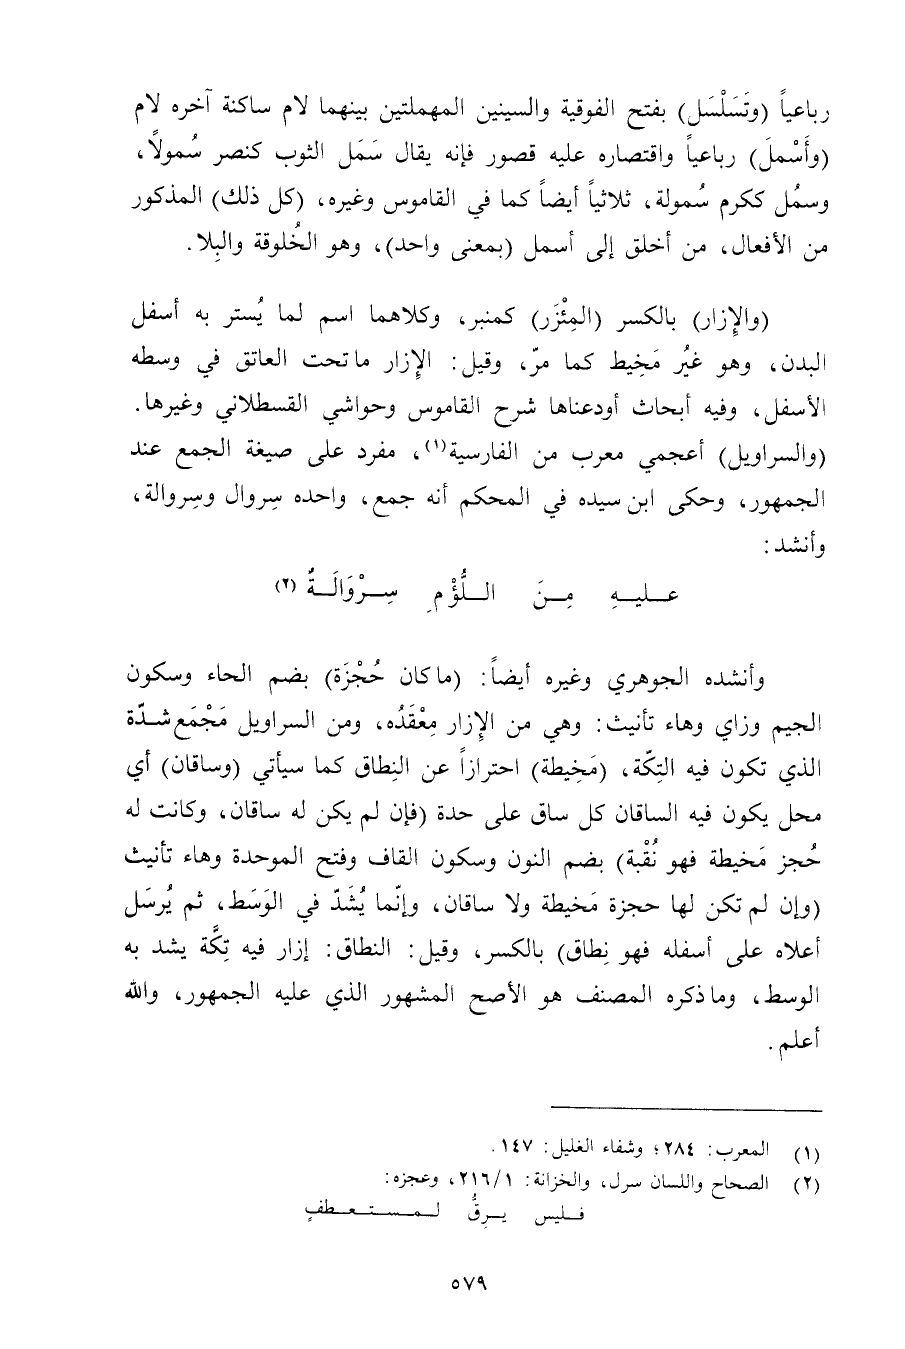 رباعياً (وتَسَلْسَل) بفتح الفوقية والسينين المهملتين بينهما لام ساكنة آخره لام
(وأَسْملَ) رباعياً واقتصاره عليه قصور فإنه يقال سَمَل الثوب كنصر سُمولاً،
وسمُل ككرم سُمولة، ثلاثياً أيضاً كما في القاموس وغيره، (كل ذلك) المذكور
من الأفعال، من أخلق إلى أسمل (بمعنى واحد)، وهو الخُلوقة والبِلا.
(والإِزار) بالكسر (المِئْزَر) كمنبر، وكلاهما اسم لما يُستر به أسفل
البدن، وهو غيُر مَخِيط كما مرّ، وقيل: الإزار ما تحت العاتق في وسطه
الأسفل، وفيه أبحاث أودعناها شرح القاموس وحواشي القسطلاني وغيرها.
(والسراويل) أعجمي معرب من الفارسية(١)، مفرد على صيغة الجمع عند
الجمهور، وحكى ابن سيده في المحكم أنه جمع، واحده سِروال وسِروالة،
وأنشد:
عـلـيـهِ مِـنَ الـلُّؤْمِ سِـرْوَالَـةٌ (٢)
وأنشده الجوهري وغيره أيضاً: (ما كان حُجْزَة) بضم الحاء وسكون
الجيم وزاي وهاء تأنيث: وهي من الإِزار مِعْقَدُه، ومن السراويل مَجْمَع شـدّة
الذي تكون فيه التِكّة، (مَخِيطة) احترازاً عن النِطاق كما سيأتي (وساقان) أي
محل يكون فيه الساقان كل ساق على حدة (فإن لم يكن له ساقان، وكانت له
حُجز مَخيطة فهو نُقْبة) بضم النون وسكون القاف وفتح الموحدة وهاء تأنيث
(وإن لم تكن لها حجزة مَخيطة ولا ساقان، وإنّما يُشَدّ في الوَسَط، ثم يُرسَل
أعلاه على أسفله فهو نِطاق) بالكسر، وقيل: النطاق: إزار فيه تِكَّة يشد به
الوسط، وما ذكره المصنف هو الأصح المشهور الذي عليه الجمهور، والله
أعلم.
(١) المعرب: ٢٨٤؛ وشفاء الغليل: ١٤٧.
(٢) الصحاح واللسان سرل، والخزانة: ٢١٦/١، وعجزه:
فـلـيـس يـرِقُّ لـمـسـتـعـطـفٍ
٥٧٩